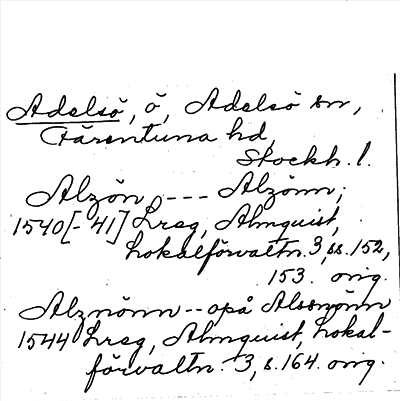 Adelsö, ö, Adelsö sn,
Färentuna hd,
Stockh. l.
Alzön, --- Alzönn,
1540[-41] Lrag, Almquist,
Lokalförvaltn. 3, ss. 152,
153. orig.
Alznönn -- opå Alssnönn
1544 Lrag, Almquist, Lokal-
förvaltn. 3, s. 164. orig.